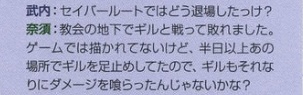 武内：セイバールートではどう退場したっけ？
奈須：教会の地下でギルと戦って敗れました。
ゲームでは描かれてないけど、半日以上あの
場所でギルを足止めしてたので、ギルもそれな
りにダメージを喰らったんじゃないかな？